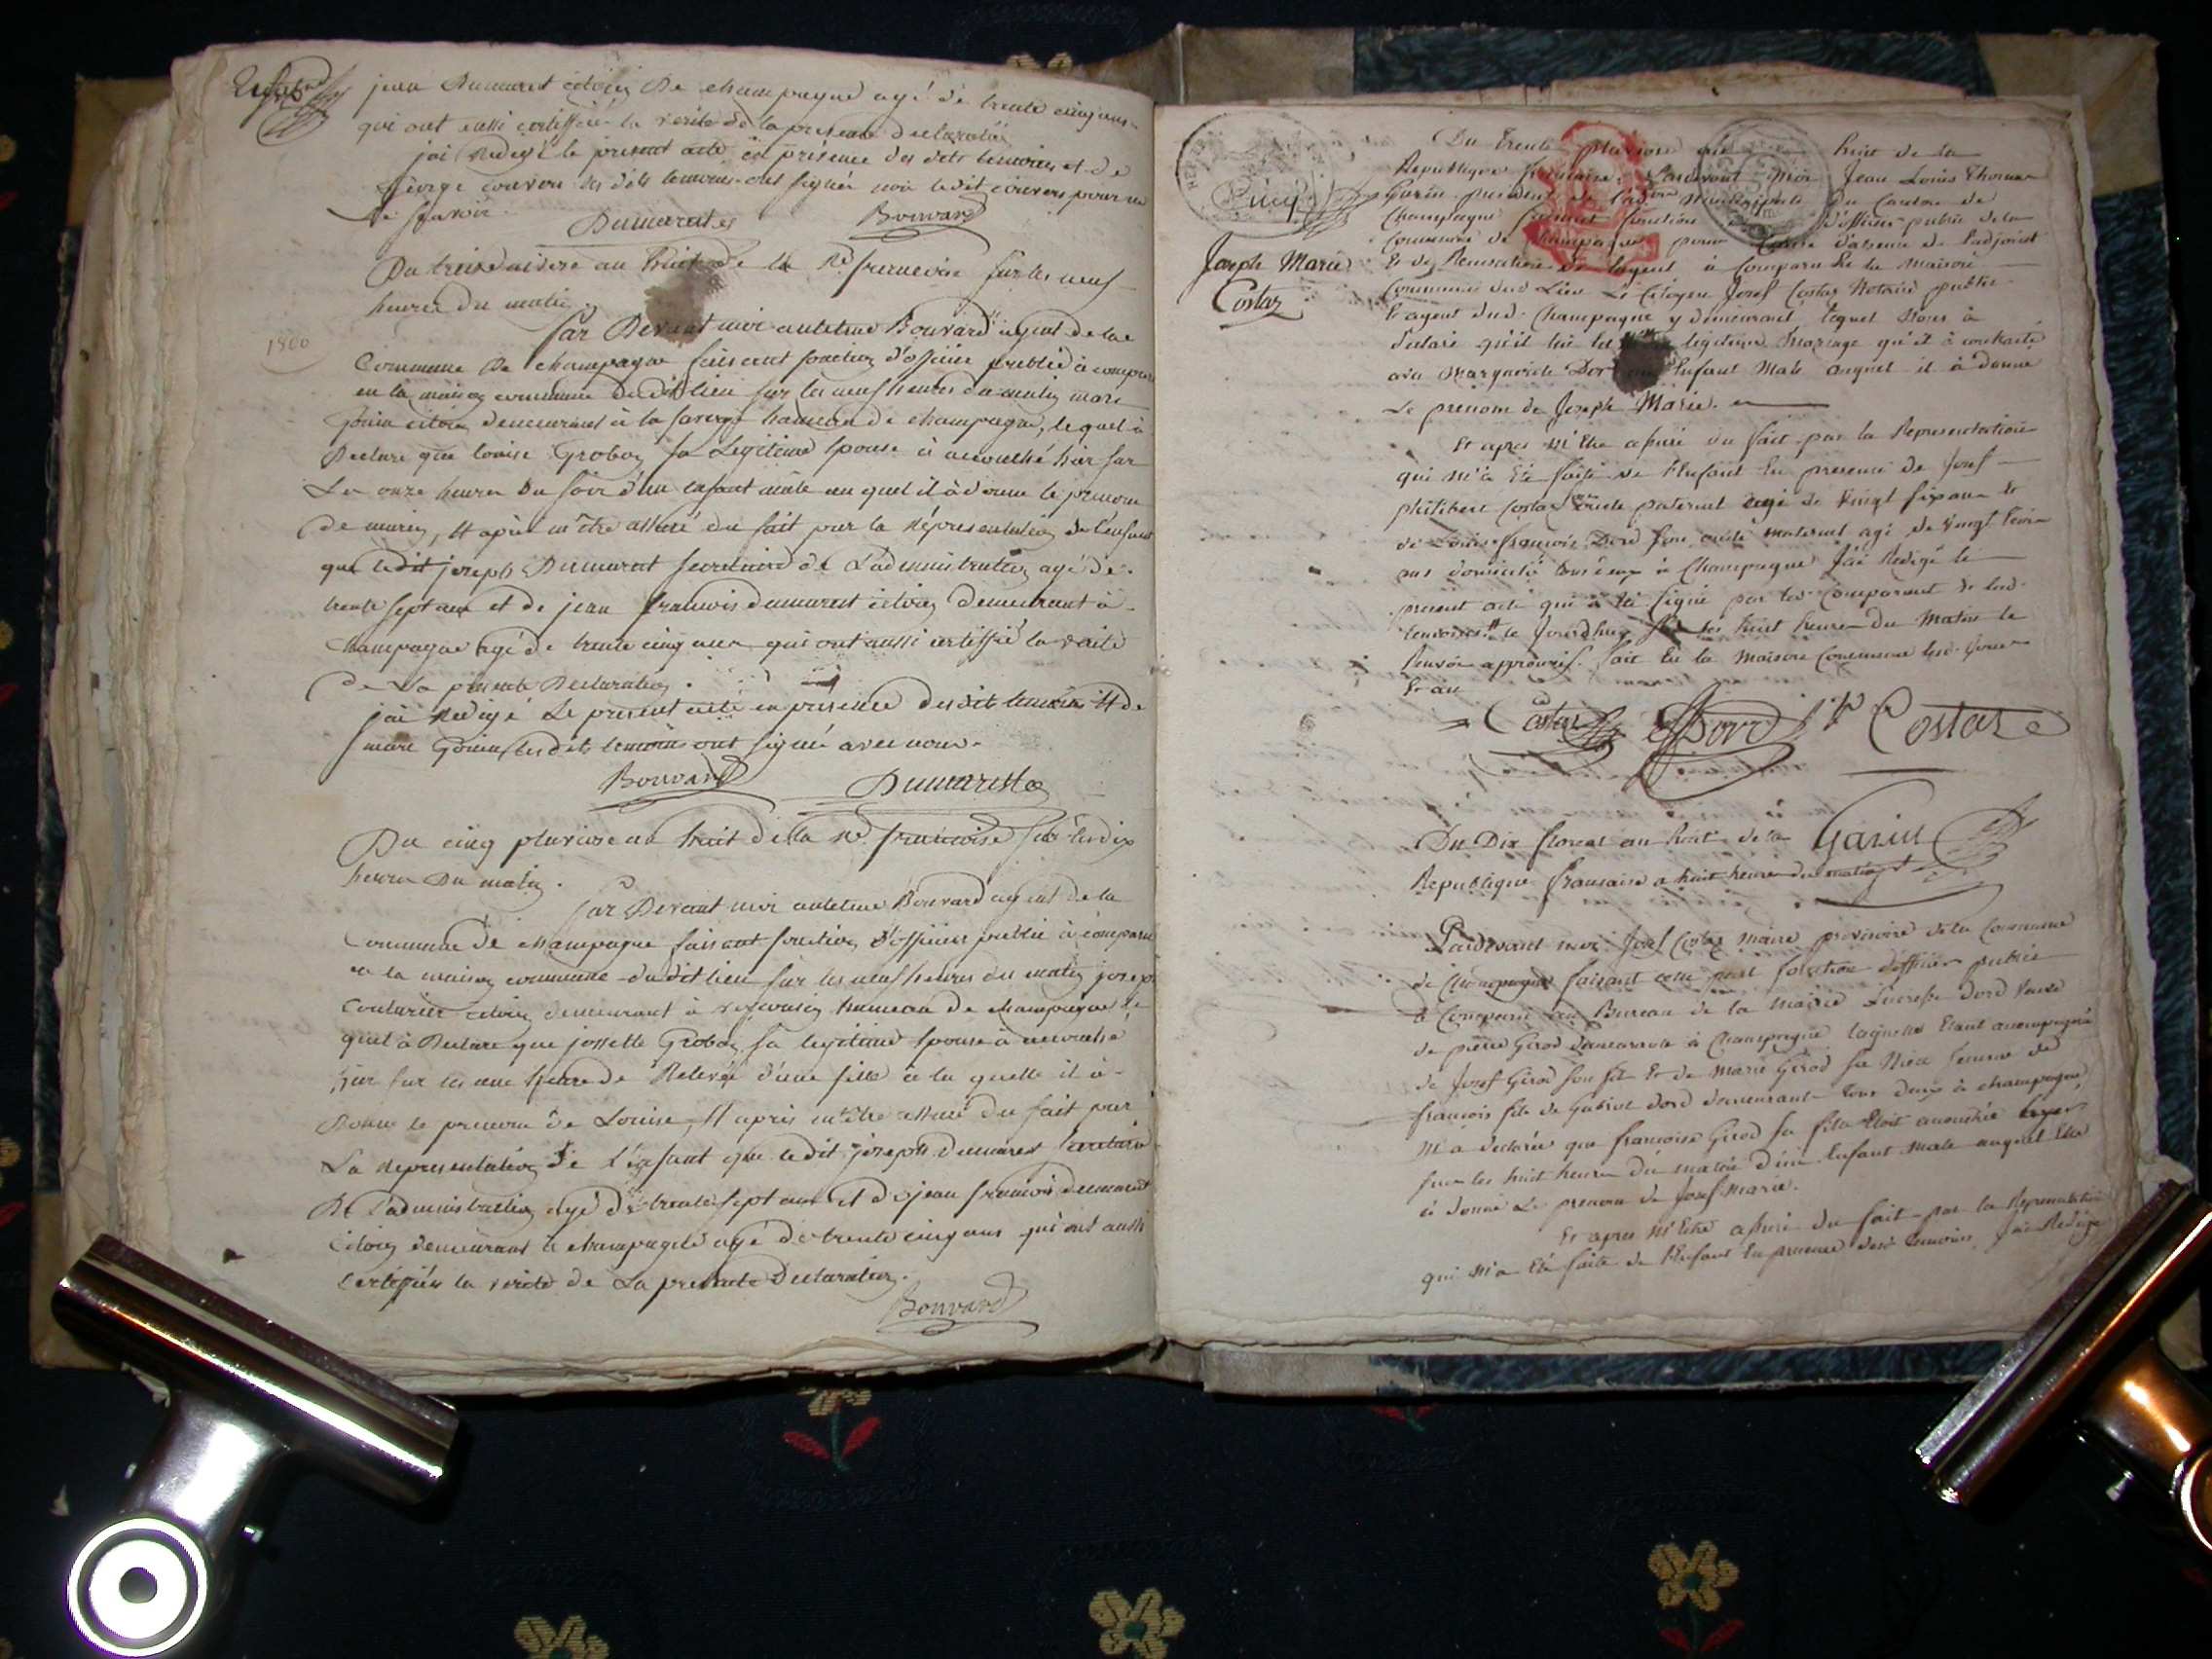 jean Dumarest citoien De champagne agé de trente cinq ans
qui ont aussi certiffiée la vérité de la presente declaration
jai Redigé le present acte en présence des dits temoins et de
george couvers les dits temoins ont signée non ledit couvers pour ne
le savoir.
Dumarest Bouvard
Du trois nivose an huit de la Rque francoise sur les neuf
heures du matin.
1800
Par Devant moi antelme Bouvard agent de la
Commune De champagne faisant fonction d'officier publié à comparu
en la maison commune dudit lieu sur les neuf heures du matin marc
gonin citoien demeurant à la hameau de champagne, lequel à
Declaré que louise Grobon sa Legitime Epouse à accouché hier sur
Les onze heures Du soir d'un enfant mâle au quel il à donné le prenom
de marin, Et après m'être assuré du fait par la Répresentation de l'enfant
que ledit joseph Dumarest secretaire de L'administration agé de
trente sept ans et de jean francois dumarest citoien demeurant à
champagne agé de trente cinq ans qui ont aussi certiffié la vérité
De La presente Declaration.
jai Redigé Le present acte en presence desdit temoins Et de
marc gonin lesdits temoins ont signé avec nous.
Bouvard Dumarest
Du cinq pluviose an huit de la Rque francoise sur les dix
heures Du matin.
Par Devant moi antelme Bouvard agent de la
Commune de champagne faisant fonction d'officier publié à comparu
en la maison commune dudit lieu sur les neuf heures du matin joseph
Couturier citoien demeurant à hameau de champagne le
quel à Declaré que josette Grobon sa legitime Epouse à accouché
hier sur les une heure de Relevée d'une fille à la quelle il à
Donné le prenom de Louise, Et après m'être assuré du fait par
La Representation de l'enfant que ledit joseph dumarest secretaire
De l'administration agé de trente sept ans et de jean francois dumarest
Citoien demeurant à champagne agé de trente cinq ans qui ont aussi
certiffiée la vérité de La presente Declaration.
Bouvard
Du trente Pluviose an huit de la
Republique francaise. Pardevant Moi Jean Louis Thomas
Garin president de l'adon Municipale Du Canton de
Champagne faisant fonction d'officier public de la
Commune de Champagne pour Cause d'absence de l'adjoint
Joseph Marie
Costaz
Et de l'agent à Comparu En la Maison
Commune dud Lieu Le Citoyen Josef Costaz Notaire public
Et agent dud. Champagne y demeurant lequel Nous à
declaré qu'il du legitime Mariage qu'il à contracté
avec Marguerite Dord Enfant Male auquel il à donné
Le prenom de Joseph Marie.
Et apres m'Etre assuré du fait par la Representation
qui m'a Eté faite de l'Enfant En presence de Josef
philibert Costaz oncle paternel agé de vingt six ans Et
de Louis francois Dord son oncle maternel agé de vingt trois
ans domicilié tous deux à Champagne J'ai Redigé le
present acte qui à Eté signé par les Comparant Et les
temoins le Jourd'huy sur les huit heures Du Matin le
Renvoi approuvé. fait En la Maison Commune lesd. Jour
Et an
Costaz Dord Costaz
Garin
Du Dix floreal an huit de la
Republique francaise a huit heures du matin
Pardevant moi Josef Costaz Maire provisoire de la Commune
de Champagne faisant fonction d'officier public
à Comparu au Bureau de la Mairie Lucresse Dord Veuve
de pierre Girod demeurante à Champagne laquelle Etant accompagnée
de Josef Girod son fils Et de Marie Girod sa Niece femme de
francois fils de Gabriel Dord demeurant tous deux à champagne,
M'a declarée que francoise Girod sa fille Etoit accouchée hyer
sur les huit heures du matin d'un Enfant Male auquel Elle
à donné Le prenom de Josef Marie.
Et apres m'Etre assuré du fait par la Representation
qui m'a Eté faite de l'Enfant En presence desd temoins J'ai Redigé